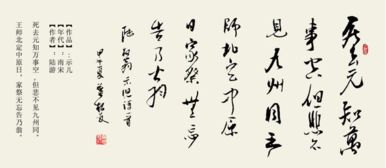 死去元知萬
事空但悲不
見九州同王
師北定中原
日家祭無忘
告乃翁
陸放翁示児詩
甲午夏
【作品】：示儿
【年代】：南宋
【作者】：陆游
死去元知万事空，但悲不见九州同。
王师北定中原日，家祭无忘告乃翁。